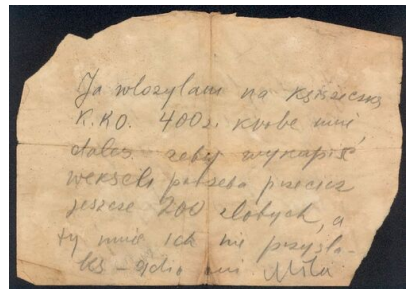 Ja włożyłam na książeczkę
K.K.O. 400 zł. które mnie,
dałeś. żeby wykupić
weksel potrzeba przecież
jeszcze 200 złotych, a
ty mnie ich nie przysła-
łeś - Mila